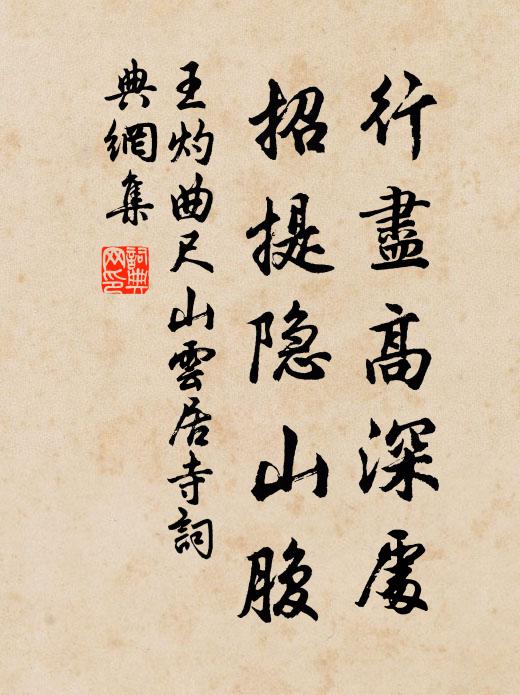 行盡高深處
招提隐山腹
王灼曲尺山雲居寺詞
典網集
詞典網印